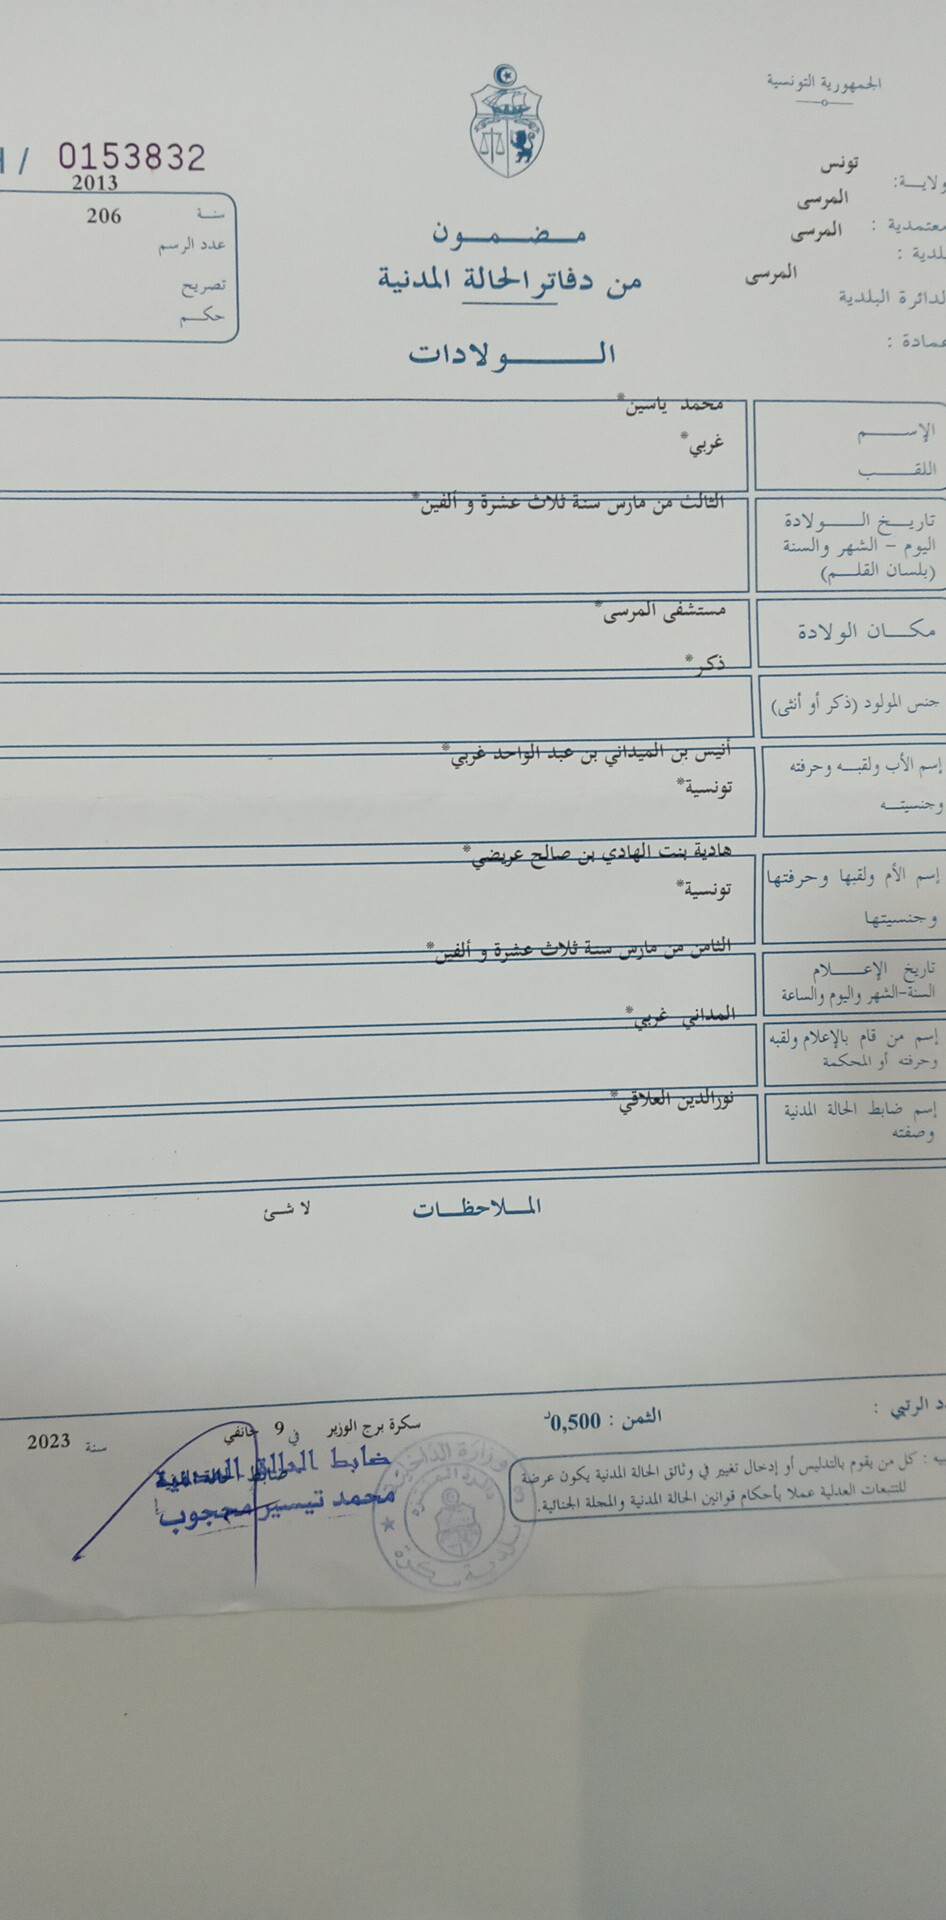 الجمهورية التونسية
ولاية: تونس
معتمدية : المرسى
بلدية : المرسى
الدائرة البلدية المرسى
عمادة :
/ 0153832
سنة 2013
عدد الرسم 206
تصريح
حكم
مضمون
من دفاتر الحالة المدنية
الولادات
الإسم محمد ياسين*
اللقب غربي*
تاريخ الولادة الثالث من مارس سنة ثلاث عشرة و ألفين*
اليوم - الشهر والسنة
(بلسان القلم)
مكان الولادة مستشفى المرسى*
جنس المولود (ذكر أو أنثى) ذكر*
إسم الأب ولقبه وحرفته أنيس بن الميداني بن عبد الواحد غربي*
وجنسيته تونسية*
إسم الأم ولقبها وحرفتها هادية بنت الهادي بن صالح عريضي*
وجنسيتها تونسية*
تاريخ الإعلام الثامن من مارس سنة ثلاث عشرة و ألفين*
السنة-الشهر واليوم والساعة
إسم من قام بالإعلام ولقبه المداني غربي*
وحرفته أو المحكمة
إسم ضابط الحالة المدنية نورالدين العلاقي*
وصفته
الملاحظات لا شئ
الرتبي :
الثمن : 0,500د
سكرة برج الوزير في 9 جانفي سنة 2023
كل من يقوم بالتدليس أو إدخال تغيير في وثائق الحالة المدنية يكون عرضة
للتتبعات العدلية عملا بأحكام قوانين الحالة المدنية والمجلة الجنائية.
ضابط الحالة المدنية
محمد تيسير محجوب
وزارة الداخلية
بلدية سكرة